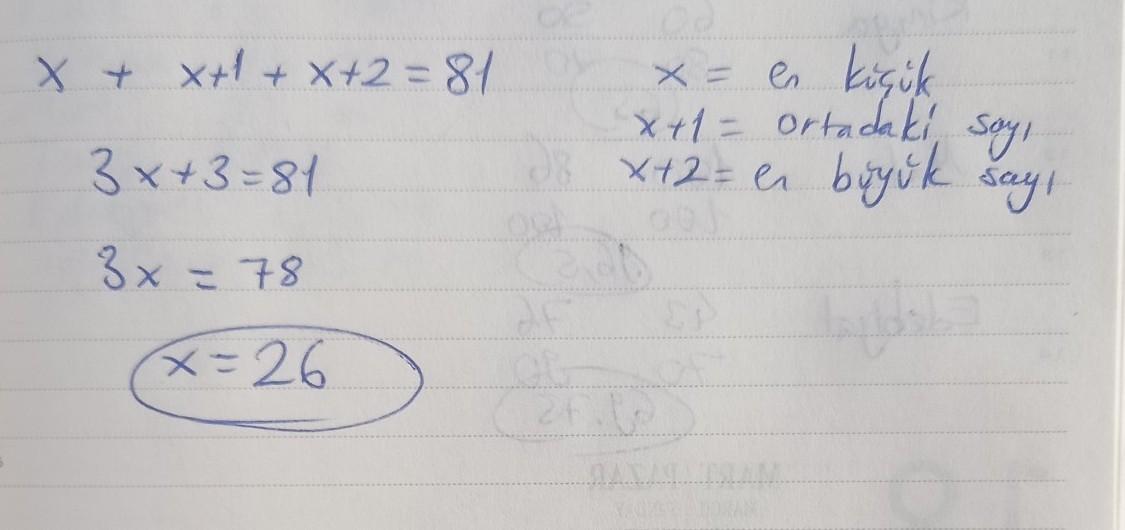 x + x+1 + x+2 = 81
x = en küçük
x+1 = ortadaki sayı
3x+3=81
x+2= en büyük sayı
3x = 78
x=26